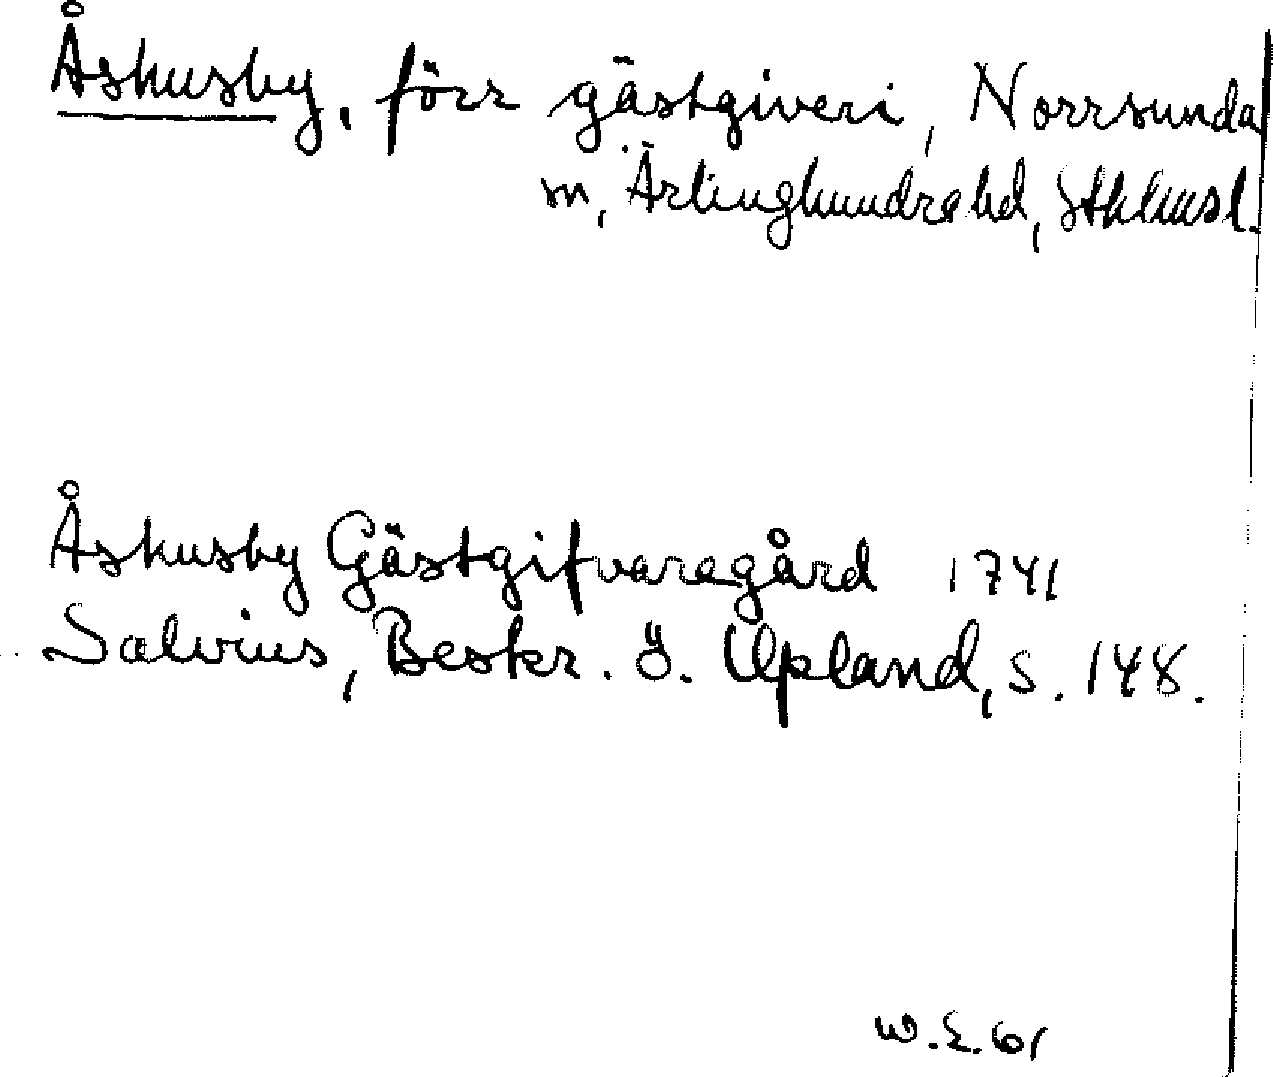 Åshusby, förr gästgiveri, Norrsunda
sn, Ärlinghundra hd, Sthlmsl.
Åshusby Gästgifvaregård 1741
Salvius, Beskr. ö. Upland, s. 148.
W.E. 61